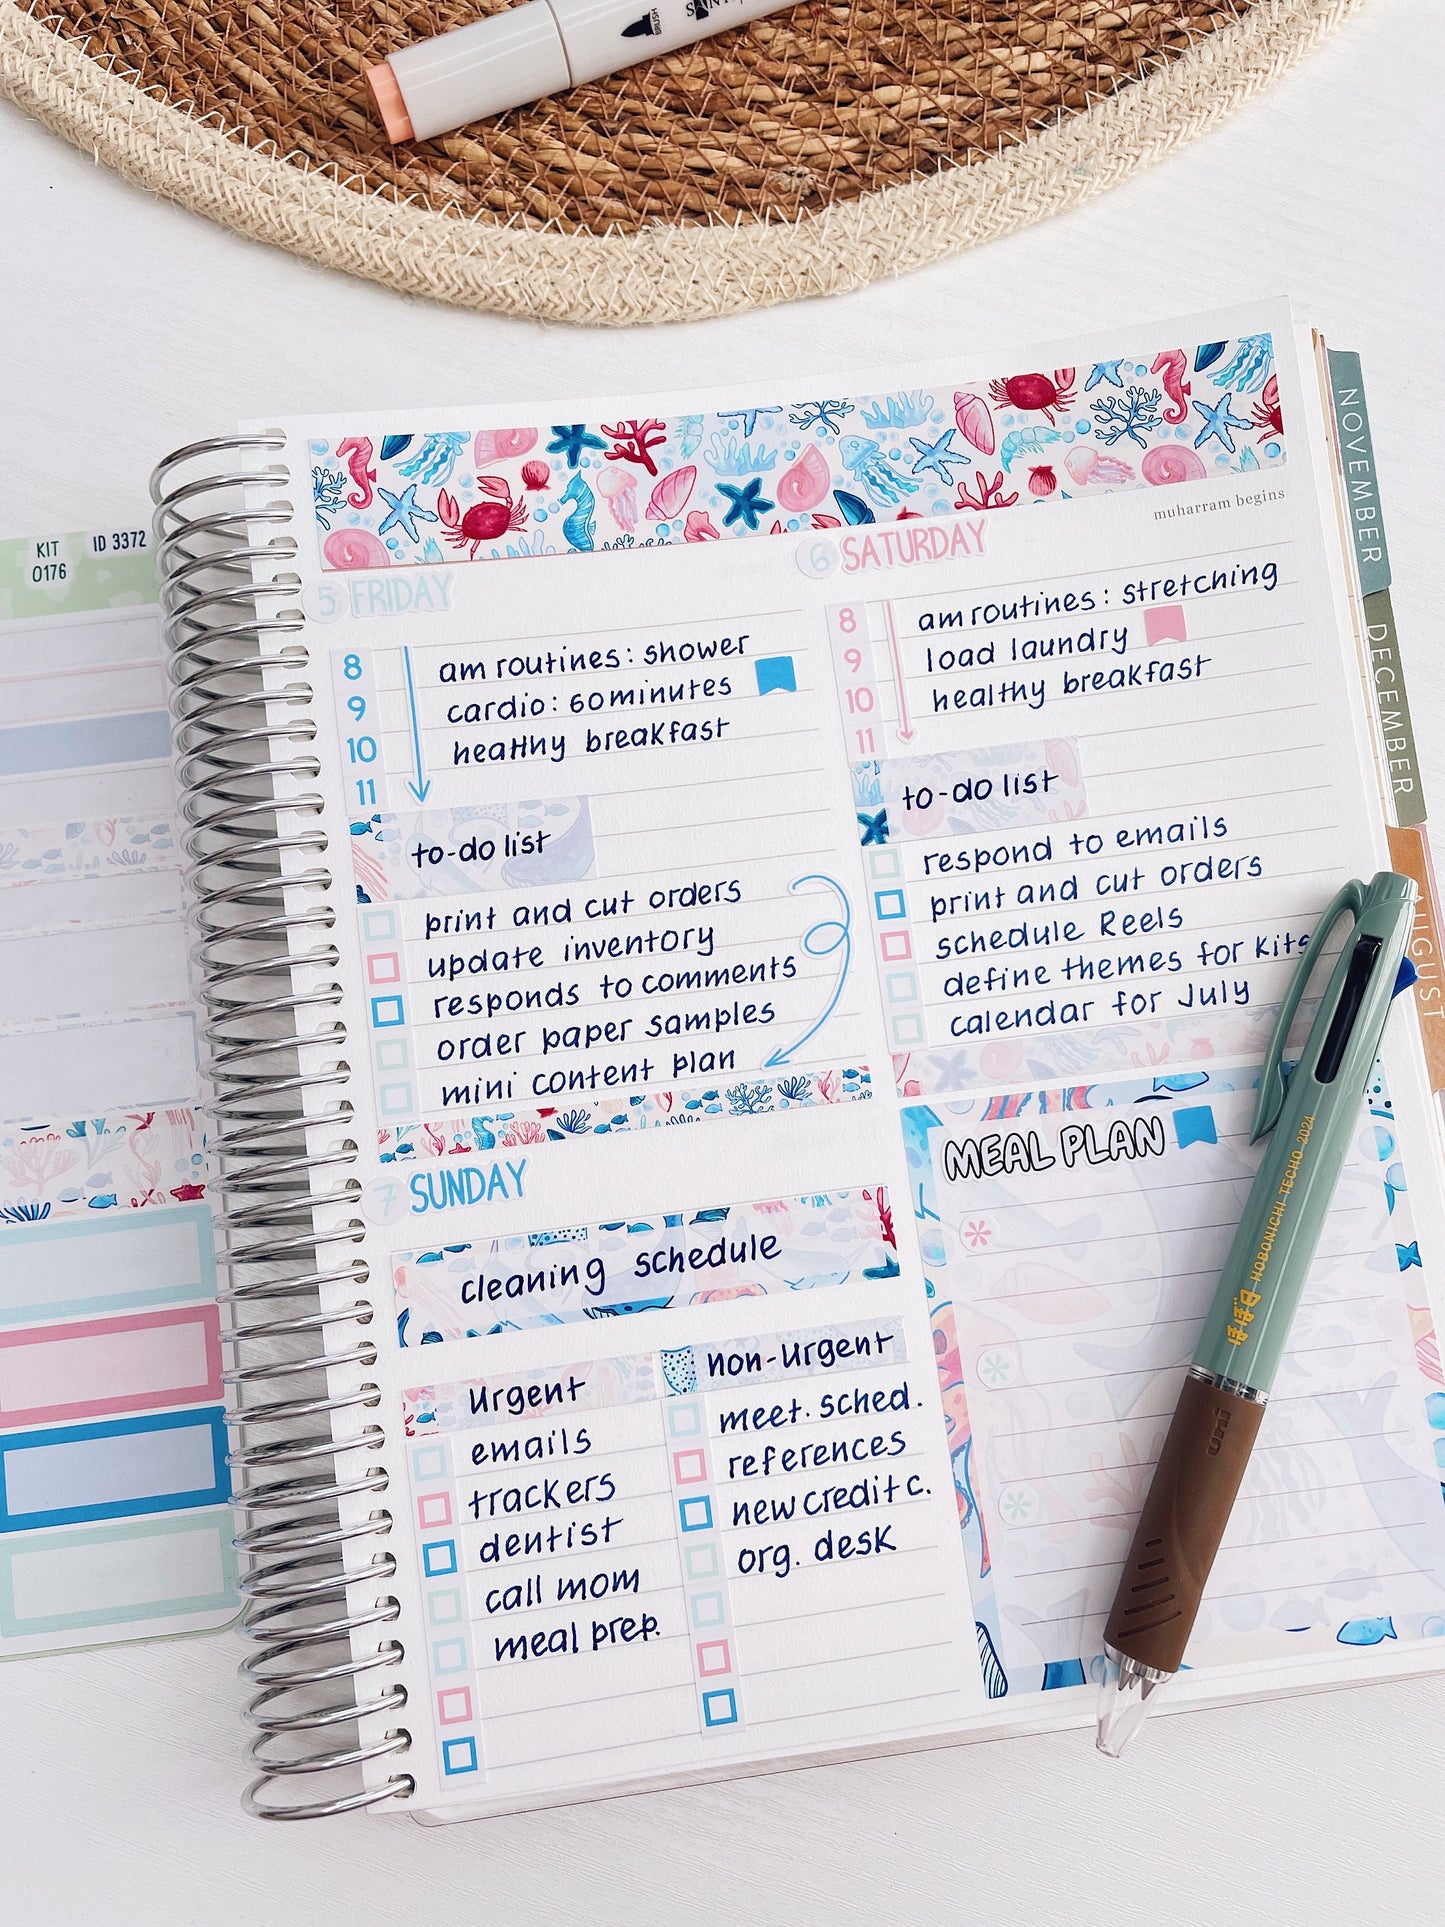 BRUSH
KIT
0176
ID 3372
NOVEMBER
DECEMBER
AUGUST
muharram begins
5 FRIDAY
8
9
10
11
am routines: shower
cardio: 60 minutes
healthy breakfast
to-do list
print and cut orders
update inventory
responds to comments
order paper samples
mini content plan
6 SATURDAY
8
9
10
11
am routines: stretching
load laundry
healthy breakfast
to-do list
respond to emails
print and cut orders
schedule Reels
define themes for kits
calendar for July
7 SUNDAY
cleaning schedule
urgent
emails
trackers
dentist
call mom
meal prep.
non-urgent
meet. sched.
references
new credit c.
org. desk
MEAL PLAN
ほぼ日 HOBONICHI TECHO 2024
uni